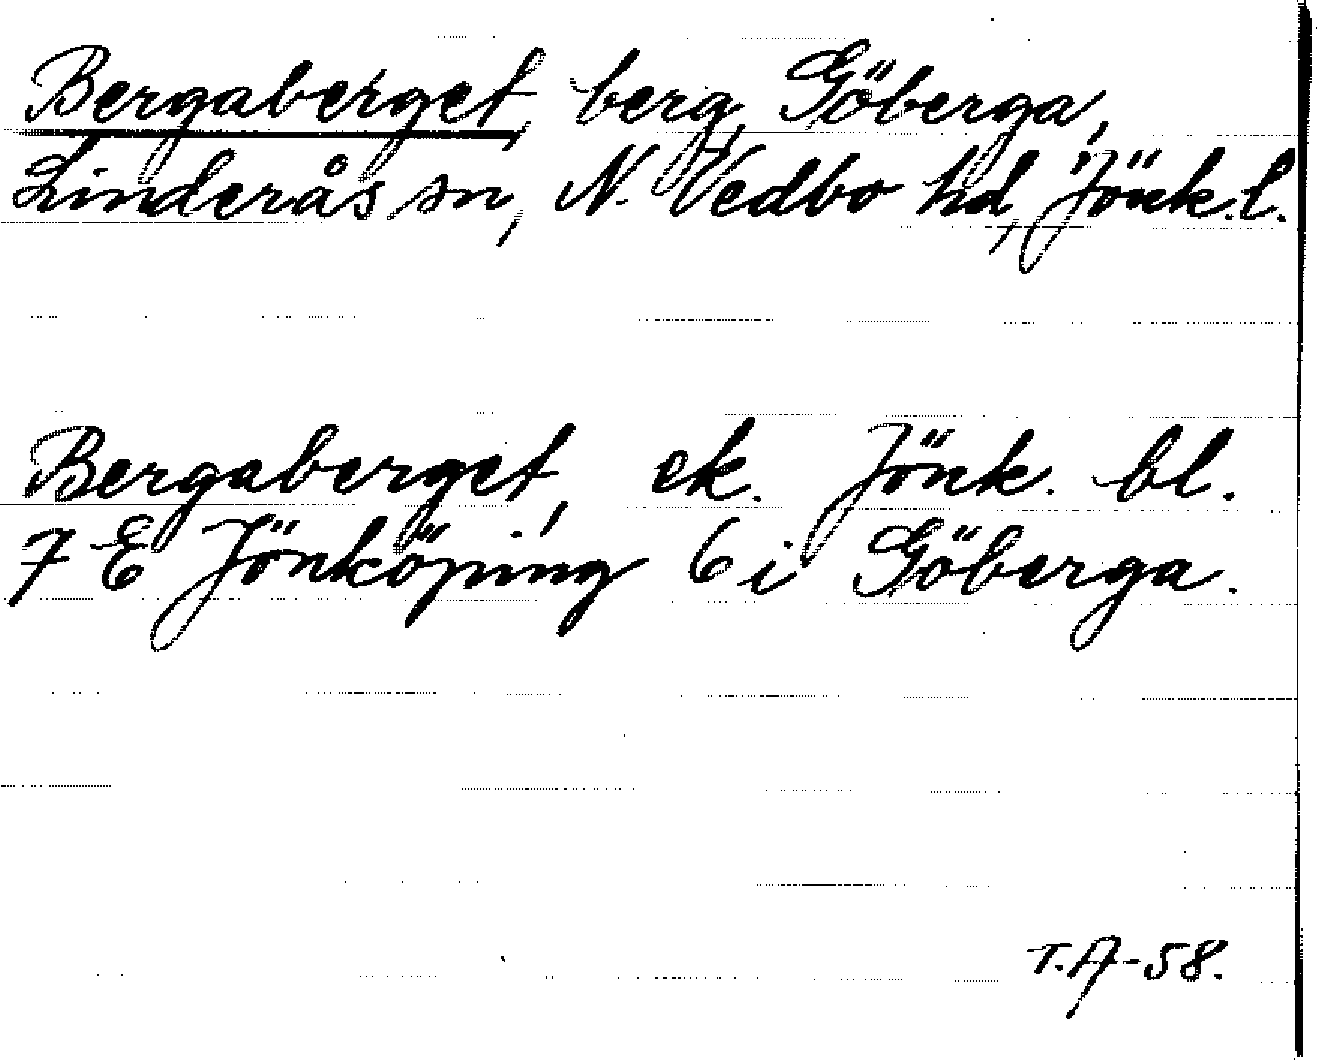 Bergaberget, berg, Göberga,
Linderås sn, N. Vedbo hd, Jönk.l.
Bergaberget, ek. Jönk. bl.
7 E Jönköping 6 i Göberga.
T.A-58.